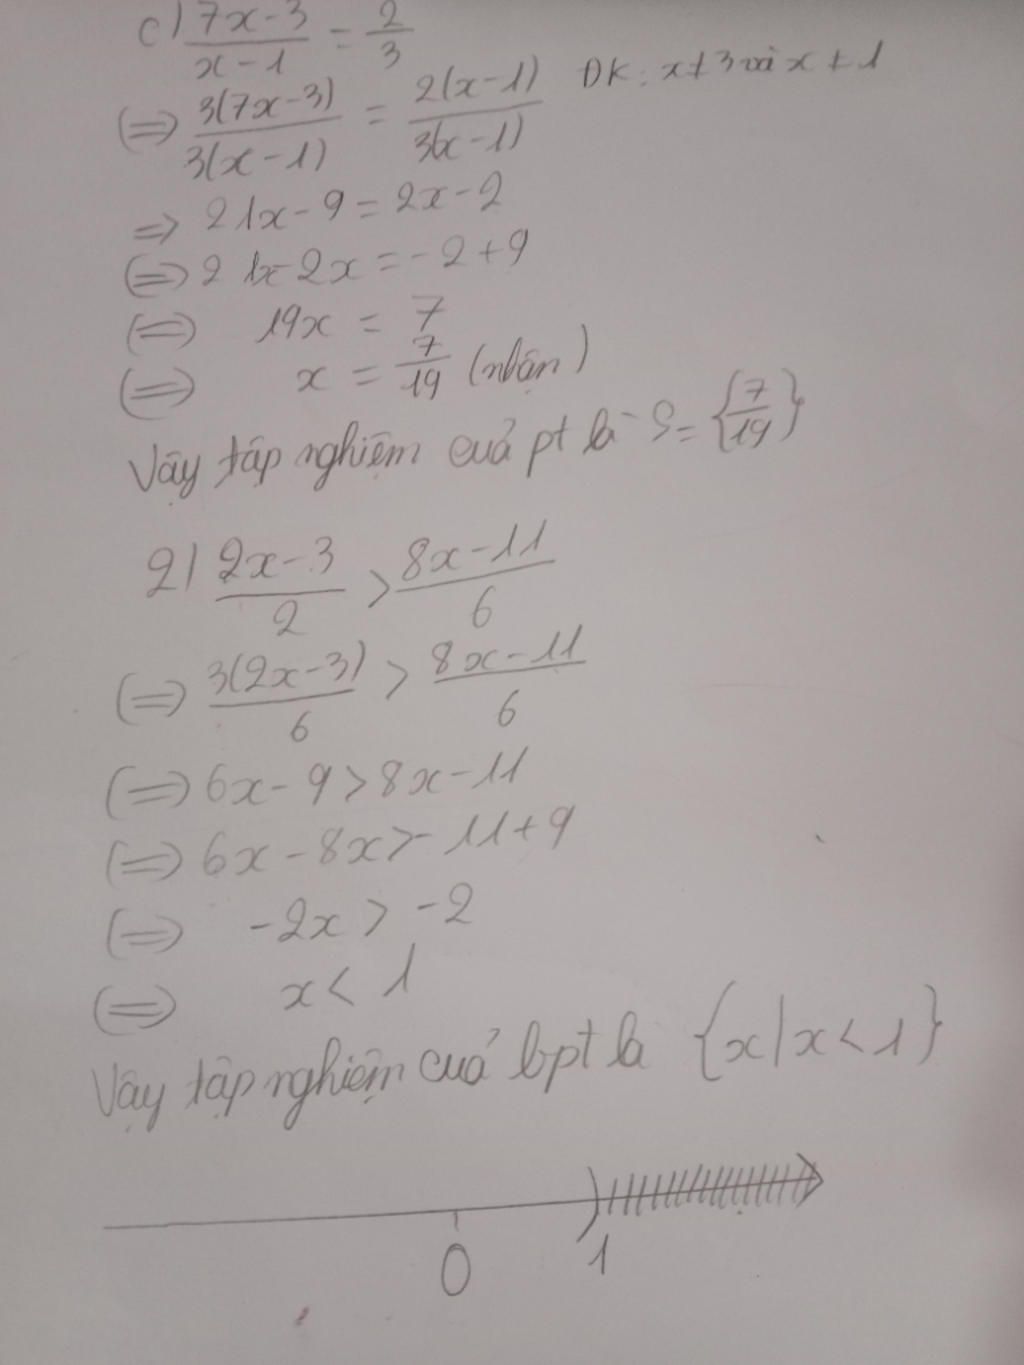 c) (7x-3)/(x-1) = 2/3
ĐK: x≠3 và x≠1
(=>) 3(7x-3)/3(x-1) = 2(x-1)/3(x-1)
=> 21x-9=2x-2
(=>) 21x-2x=-2+9
(=>) 19x = 7
(=>) x = 7/19 (nhận)
Vậy tập nghiệm cuả pt là S={7/19}
2) (2x-3)/2 > (8x-11)/6
(=>) 3(2x-3)/6 > (8x-11)/6
(=>) 6x-9>8x-11
(=>) 6x-8x>-11+9
(=>) -2x > -2
(=>) x < 1
Vậy tập nghiệm cuả bpt là {x|x<1}
0 1